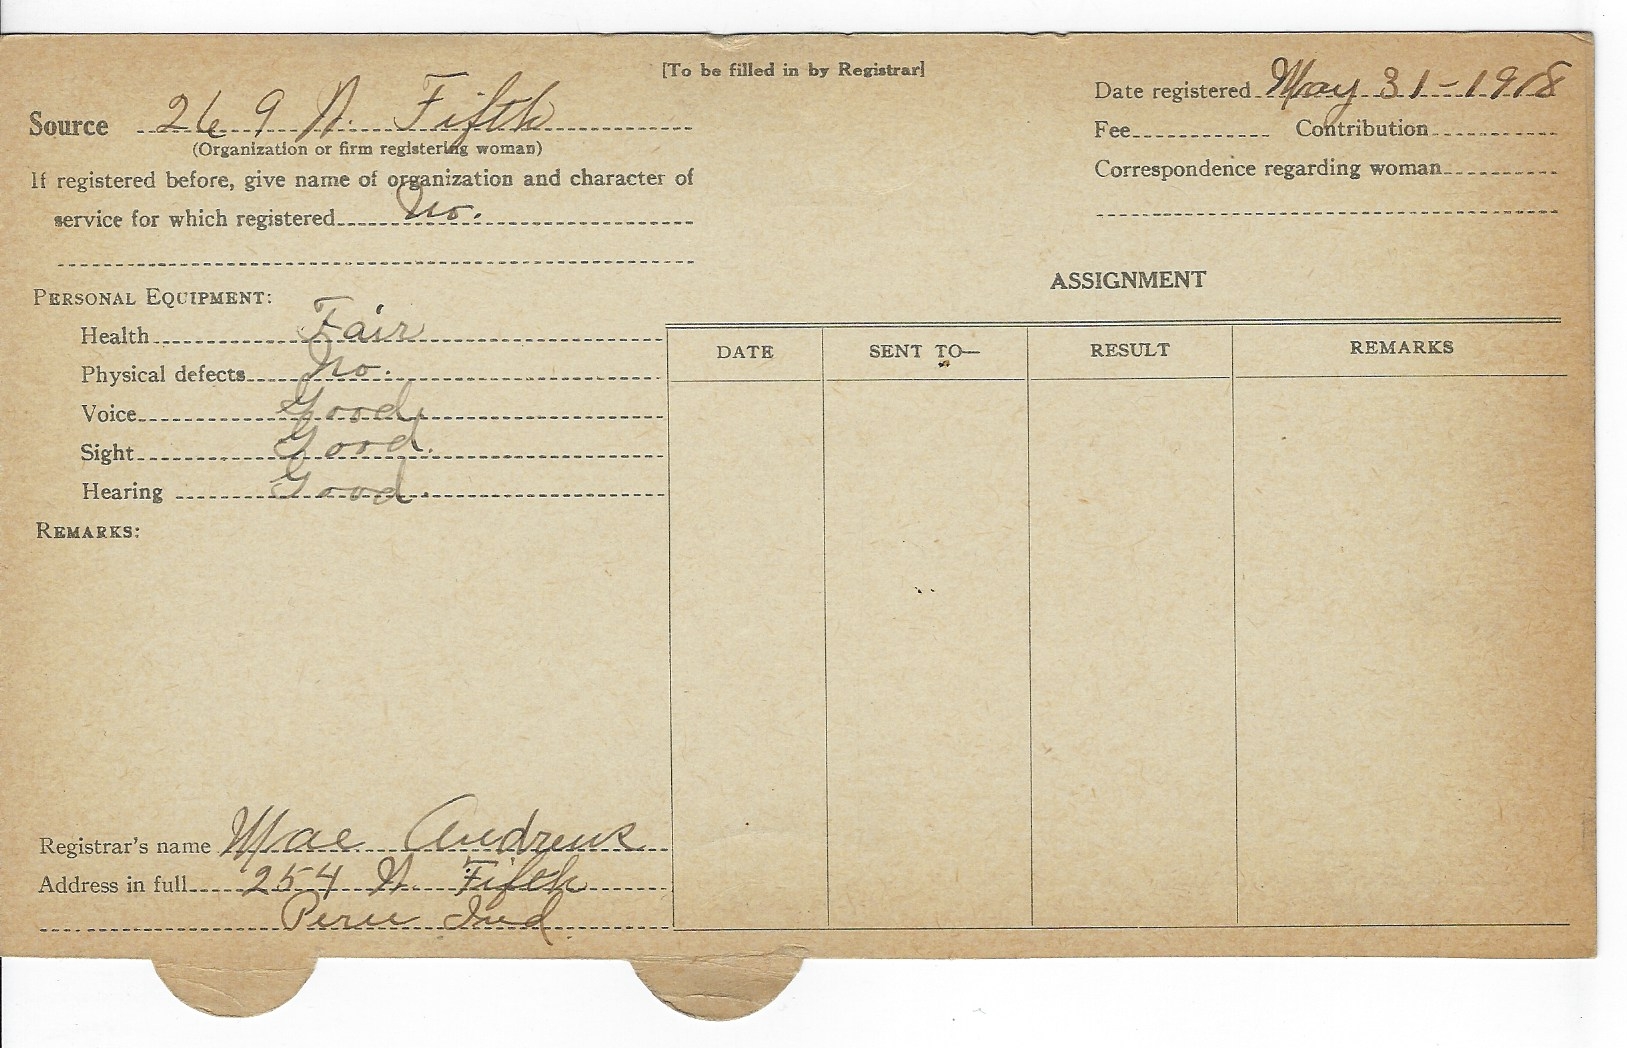 [To be filled in by Registrar]
Date registered May 31-1918
Source 269 N. Fifth
(Organization or firm registering woman)
Fee Contribution
If registered before, give name of organization and character of
Correspondence regarding woman
service for which registered No.
ASSIGNMENT
PERSONAL EQUIPMENT:
Health Fair
Physical defects No.
Voice Good.
Sight Good.
Hearing Good.
DATE SENT TO— RESULT REMARKS
REMARKS:
Registrar's name Mae Andrews
Address in full 254 N. Fifth
Peru Ind